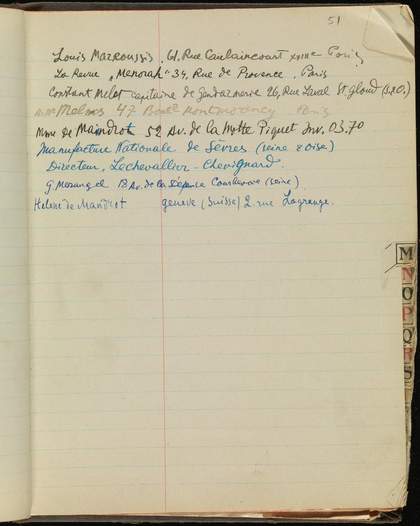 51
Louis Marcoussis, 61, Rue Caulaincourt XVIIIe Paris
La Revue "Menorah" 34, Rue de Provence, Paris
Constant Melot capitaine de gendarmerie 26, Rue Laval St Cloud (S.&O.)
47 Bard Montmorency Paris
Mme de Mandrot 52 Av. de la Motte Piquet Inv. 03.70
Manufacture Nationale de Sèvres (seine & oise)
Directeur, Lechevallier-Chevignard.
G. Av. de la Défense Courbevoie (seine).
Helene de Mandrot geneve (Suisse) 2. rue Lagrange.
M
N
O
P
Q
R
S